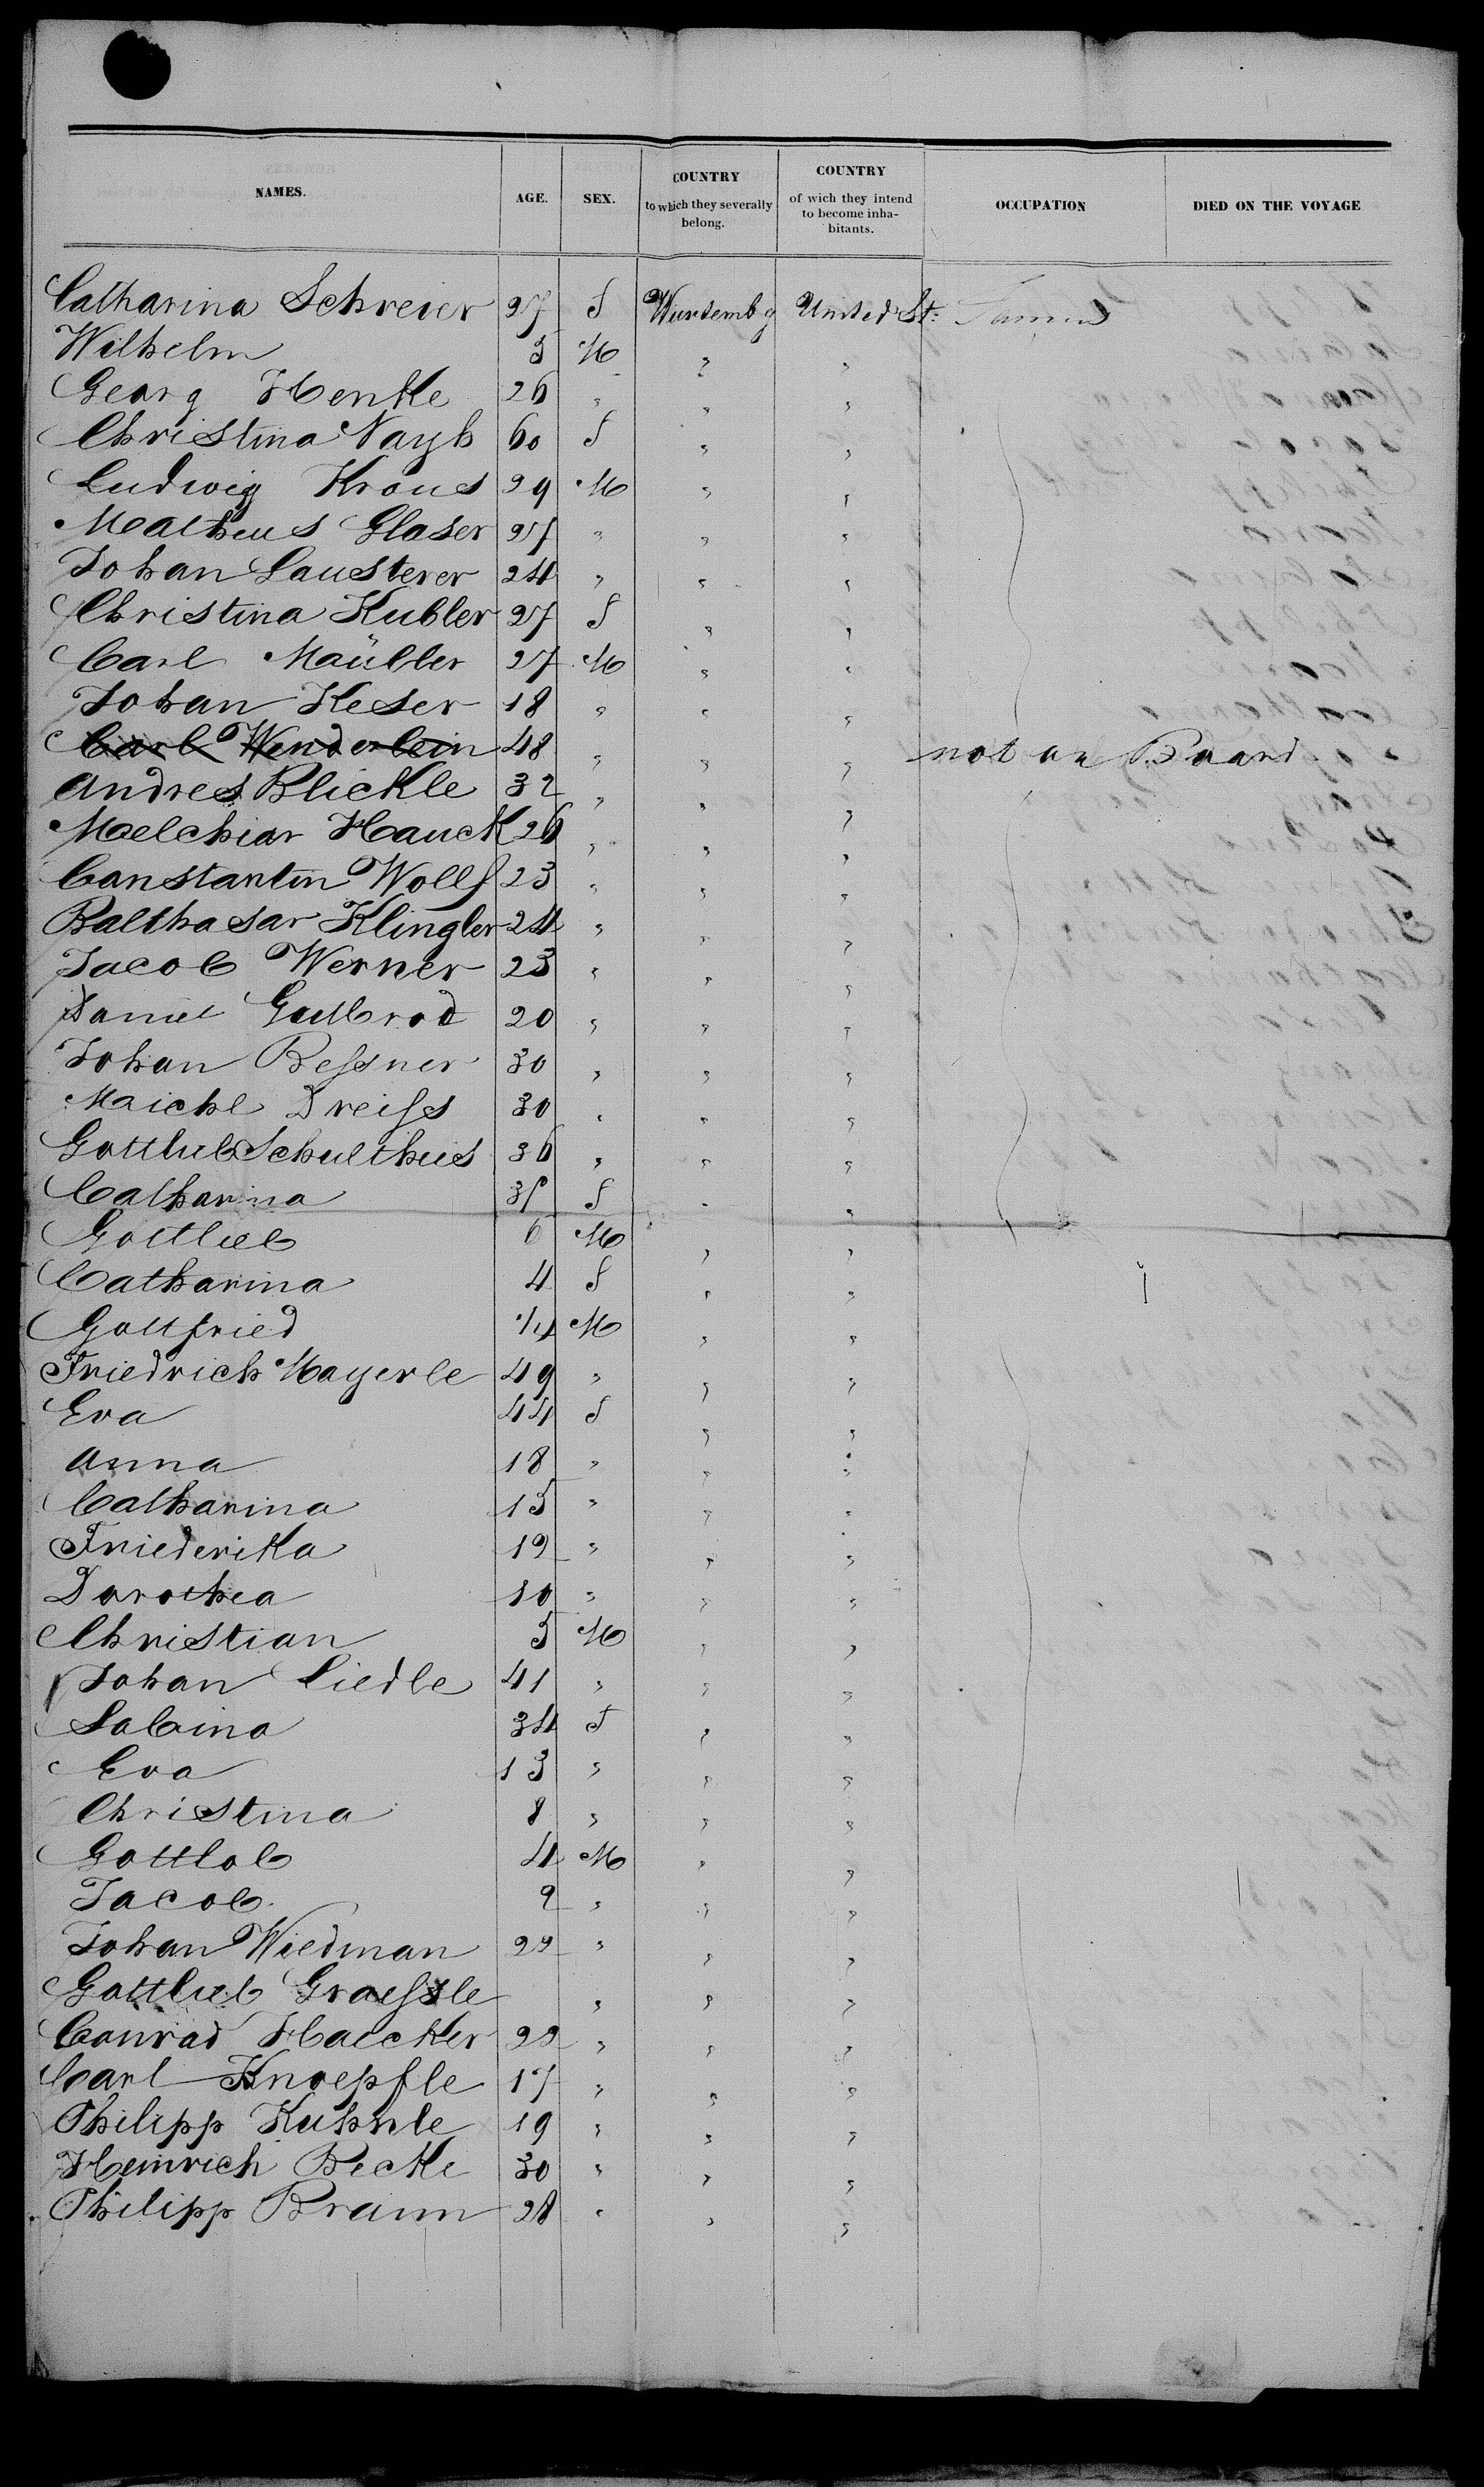 NAMES. AGE. SEX. COUNTRY to which they severally belong. COUNTRY of wich they intend to become inha- bitants. OCCUPATION DIED ON THE VOYAGE
Catharina Schreier 27 f Wurtembg United St.
Wilhelm 5 M " "
Georg Henke 26 " " "
Christina Vayh 60 f " "
Ludwig Kraus 29 M " "
Matheus Glaser 27 " " "
Johan Lausterer 24 " " "
Christina Kubler 27 f " "
Carl Maüller 27 M " "
Johan Keser 18 " " "
Carl Wenderlein 48 " " " not on Board
Andres Blickle 32 " " "
Melchior Hauck 26 " " "
Constantin Wollf 23 " " "
Balthasar Klingler 24 " " "
Jacob Werner 23 " " "
Daniel Gutbrod 20 " " "
Johan Bessner 30 " " "
Maichl Dreiss 30 " " "
Gottlieb Schultheis 36 " " "
Catharina f " "
Gottlieb 6 M " "
Catharina 4 f " "
Gottfried M " "
Friedrich Mayerle 49 " " "
Eva 44 f " "
Anna 18 " " "
Catharina 15 " " "
Friederika 12 " " "
Dorothea 10 " " "
Christian 5 M " "
Johan Liedle 41 " " "
Sabina 34 f " "
Eva 13 " " "
Christina 8 " " "
Gottlob 4 M " "
Jacob 2 " " "
Johan Wiedman 22 " " "
Gottlieb Graessle " " "
Conrad Haecker 22 " " "
Carl Knoepfle 17 " " "
Philipp Kuhnle 19 " " "
Heinrich Beckle 30 " " "
Philipp Braun 28 " " "